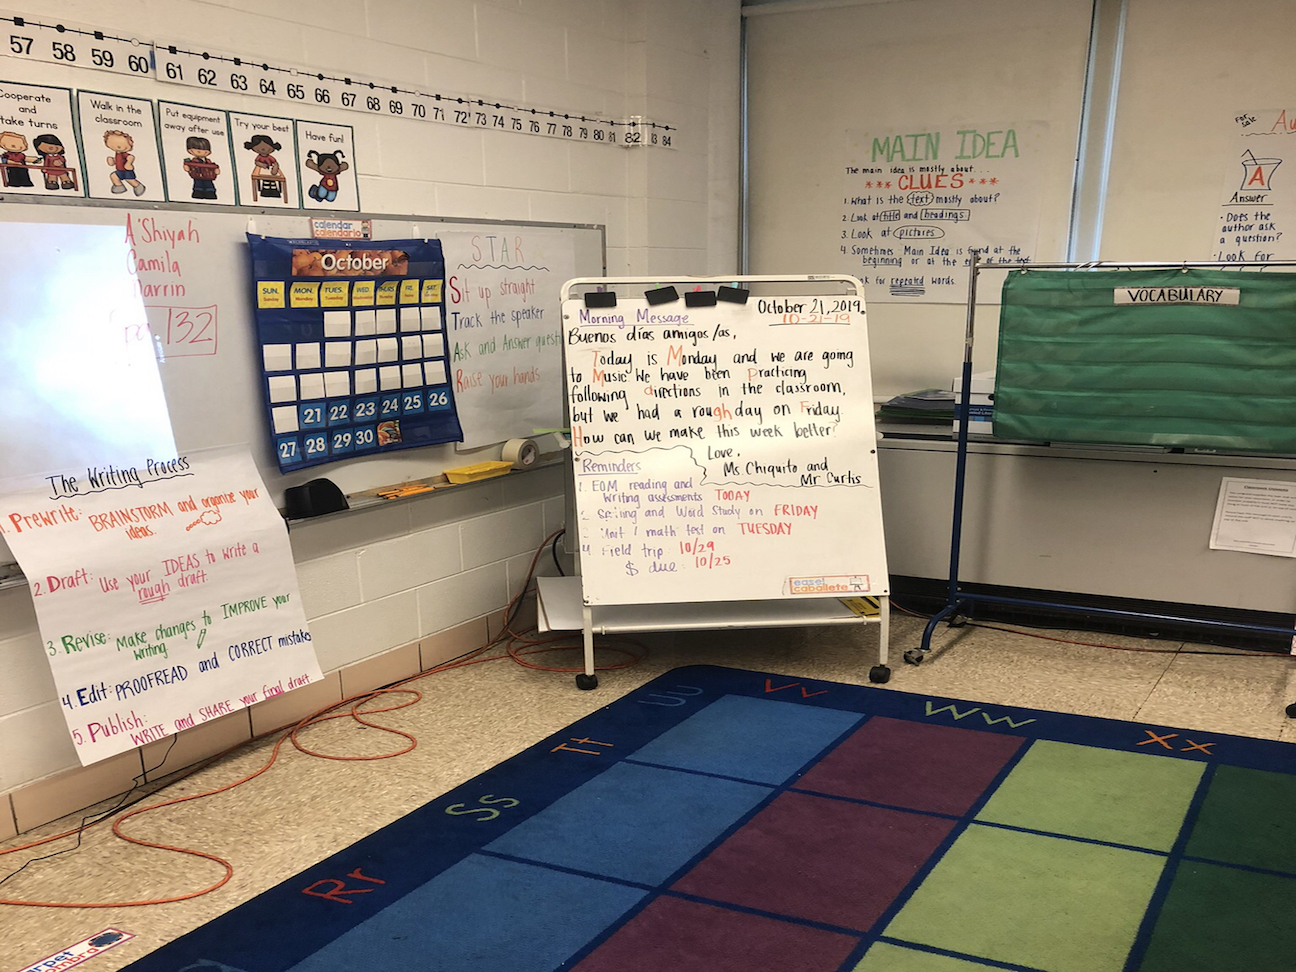 57 58 59 60 61 62 63 64 65 66 67 68 69 70 71 72 73 74 75 76 77 78 79 80 81 82 83 84
Cooperate
and
take turns
Walk in the
classroom
Put equipment
away after use
Try your best
Have fun!
A'Shiyah
Camila
132
calendar
calendario
October
SUN. MON. TUES. WED. THURS. FRI. SAT.
21 22 23 24 25 26
27 28 29 30
STAR
Sit up straight
Track the speaker
Ask and Answer quest
Raise your hands
The Writing Process
1. Prewrite: BRAINSTORM and organize your
ideas.
2. Draft: Use your IDEAS to write a
rough draft.
3. Revise: Make changes to IMPROVE your
writing.
4. Edit: PROOFREAD and CORRECT mistakes
5. Publish:
WRITE and SHARE your final draft.
October 21, 2019
10-21-19
Morning Message
Buenos días amigos/as,
Today is Monday and we are going
to Music. We have been Practicing
following directions in the classroom,
but we had a rough day on Friday.
How can we make this week better?
Love,
Ms. Chiquito and
Mr Curtis
Reminders
1. EOM reading and
Writing assessments TODAY
and Word Study on FRIDAY
Unit 1 math test on TUESDAY
4. Field trip 10/29
$ due: 10/25
easel
caballete
MAIN IDEA
The main idea is mostly about....
*** CLUES ***
1. What is the text mostly about?
2. Look at title and headings
3. Look at pictures
4. Sometimes Main Idea is found at the
beginning or at the end of the text
for repeated words.
VOCABULARY
For Sale
Au
A
Answer
• Does the
author ask
a question?
• Look for
Rr Ss Tt Uu Vv Ww Xx